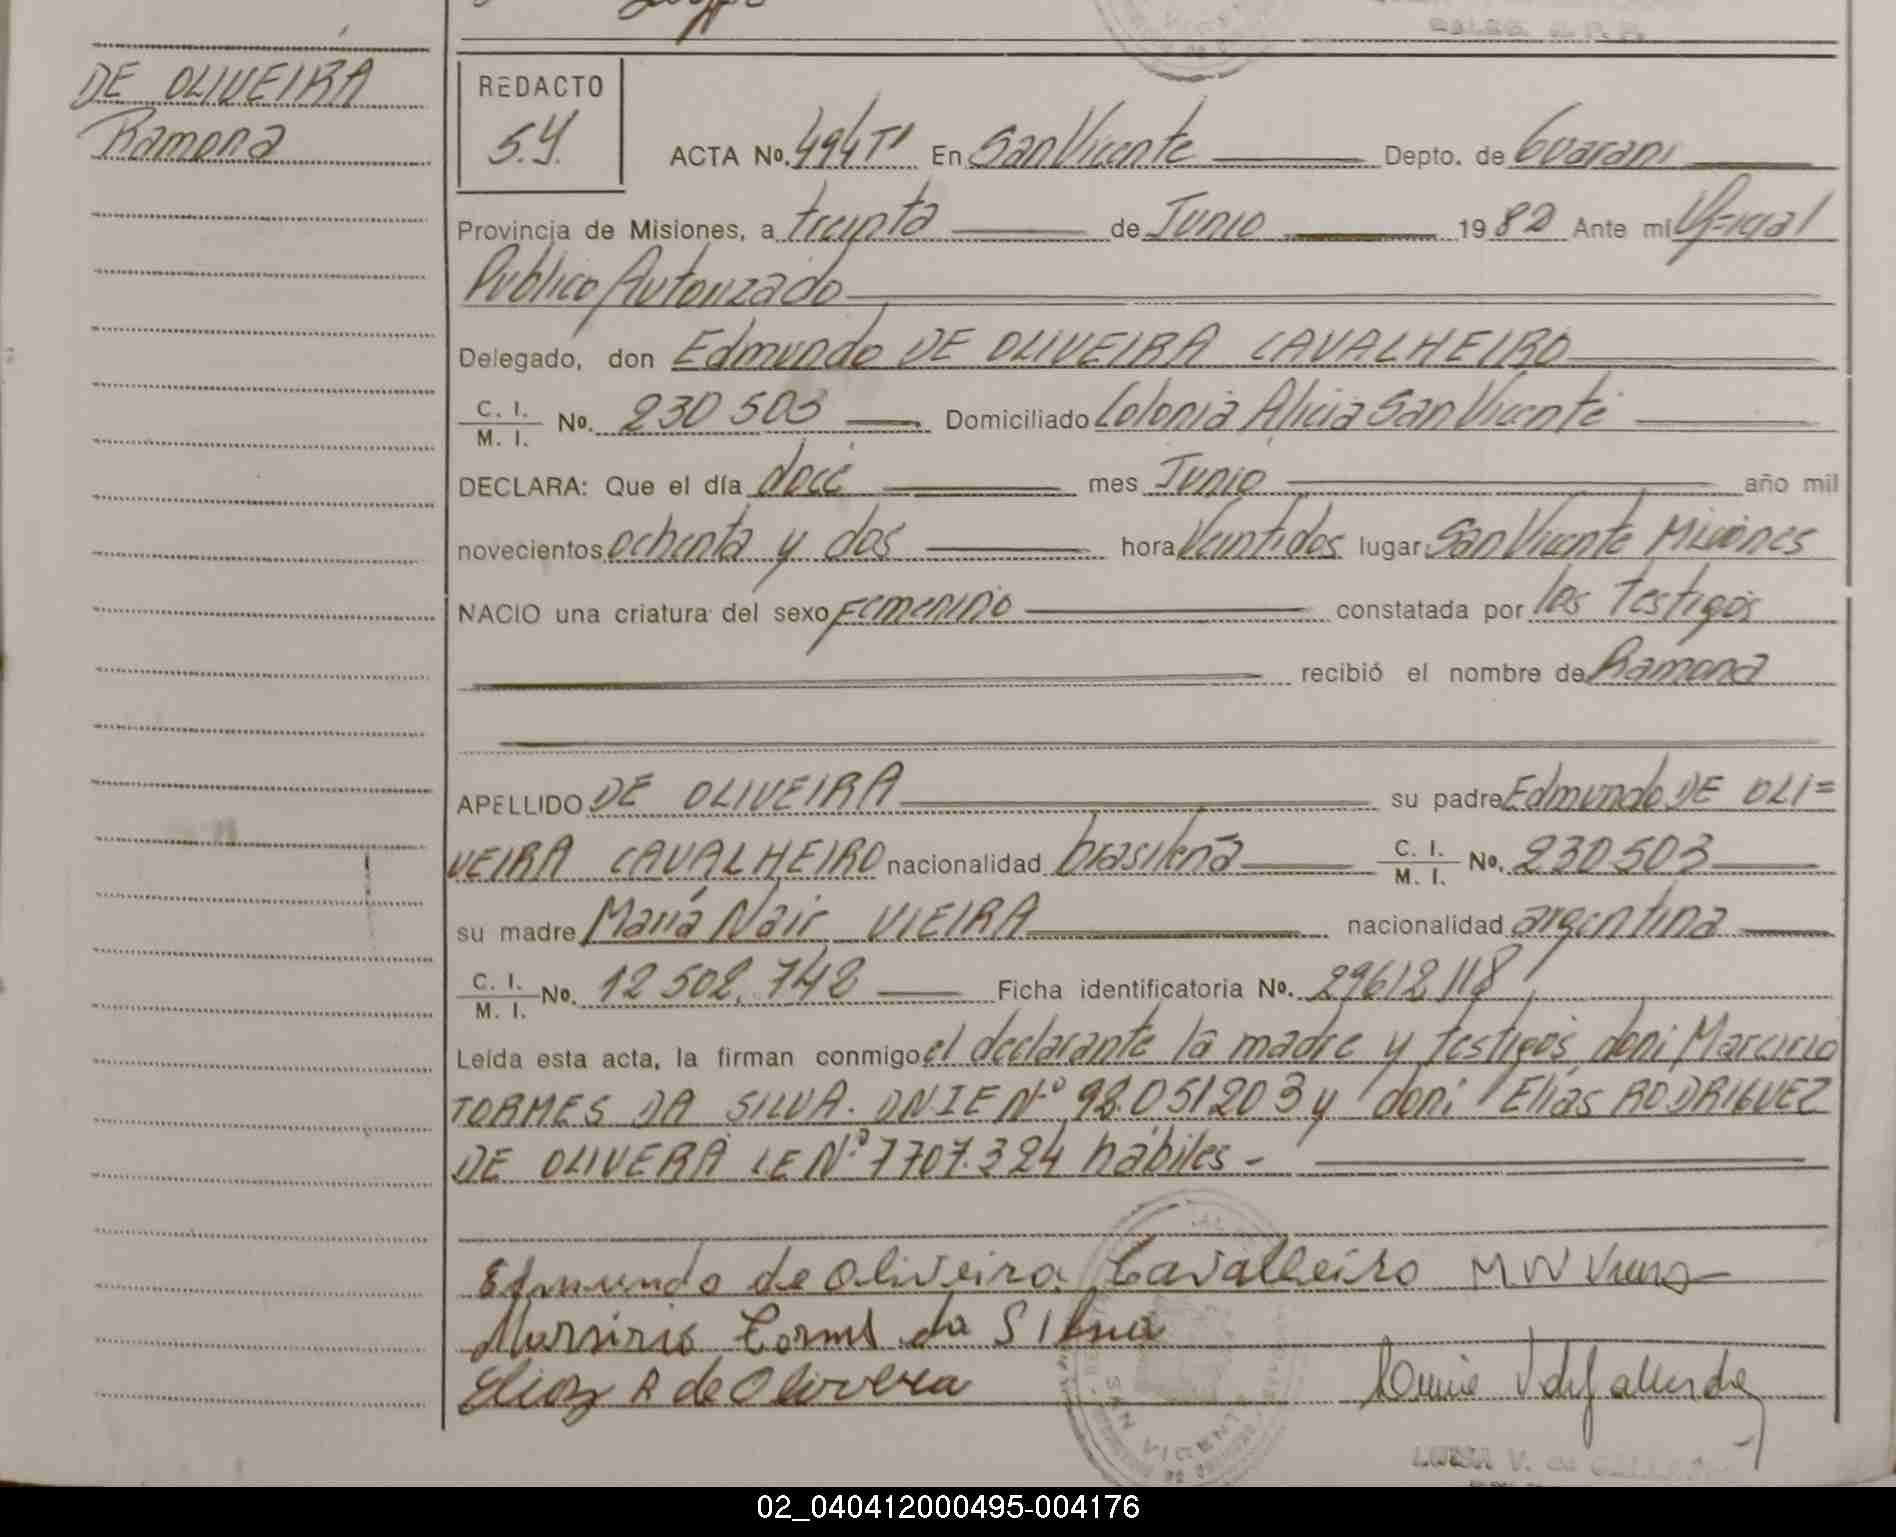 DE OLIVEIRA
Ramona
REDACTO
S.Y.
ACTA No. 494 T1 En San Vicente Depto. de Guarani
Provincia de Misiones, a treinta de Junio 1982 Ante mi Oficial
Publico Autorizado
Delegado, don Edmundo DE OLIVEIRA CAVALHEIRO
C. I. / M. I. No. 230 503 Domiciliado Colonia Alicia San Vicente
DECLARA: Que el día doce mes Junio año mil
novecientos ochenta y dos hora Veintidos lugar San Vicente Misiones
NACIO una criatura del sexo Femenino constatada por los Testigos
recibió el nombre de Ramona
APELLIDO DE OLIVEIRA su padre Edmundo DE OLI=
VEIRA CAVALHEIRO nacionalidad brasileña C. I. / M. I. No. 230503
su madre María Nair VIEIRA nacionalidad argentina
C. I. / M. I. No. 12 502.742 Ficha identificatoria No. 29612118
Leída esta acta, la firman conmigo el declarante la madre y testigos don: Marcirio
TORMES DA SILVA. DNIE Nº 92.051203 y don: Elías RODRIGUEZ
DE OLIVERA LE Nº 7707.324 hábiles -
Edmundo de Oliveira Cavalheiro M N Vieira
Marsirio Tormes da Silva
Elias R de Olivera
02_040412000495-004176